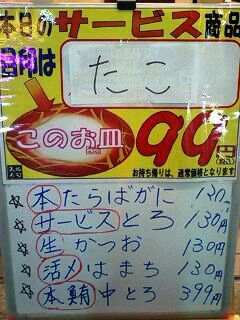 本日のサービス商品
ご印は
たこ
このお皿
99円
(税込)
お持ち帰りは、通常価格となります
☆ 本たらばがに 130円
☆ サービスとろ 130円
☆ 生かつお 130円
☆ 活〆はまち 130円
☆ 本鮪中とろ 399円